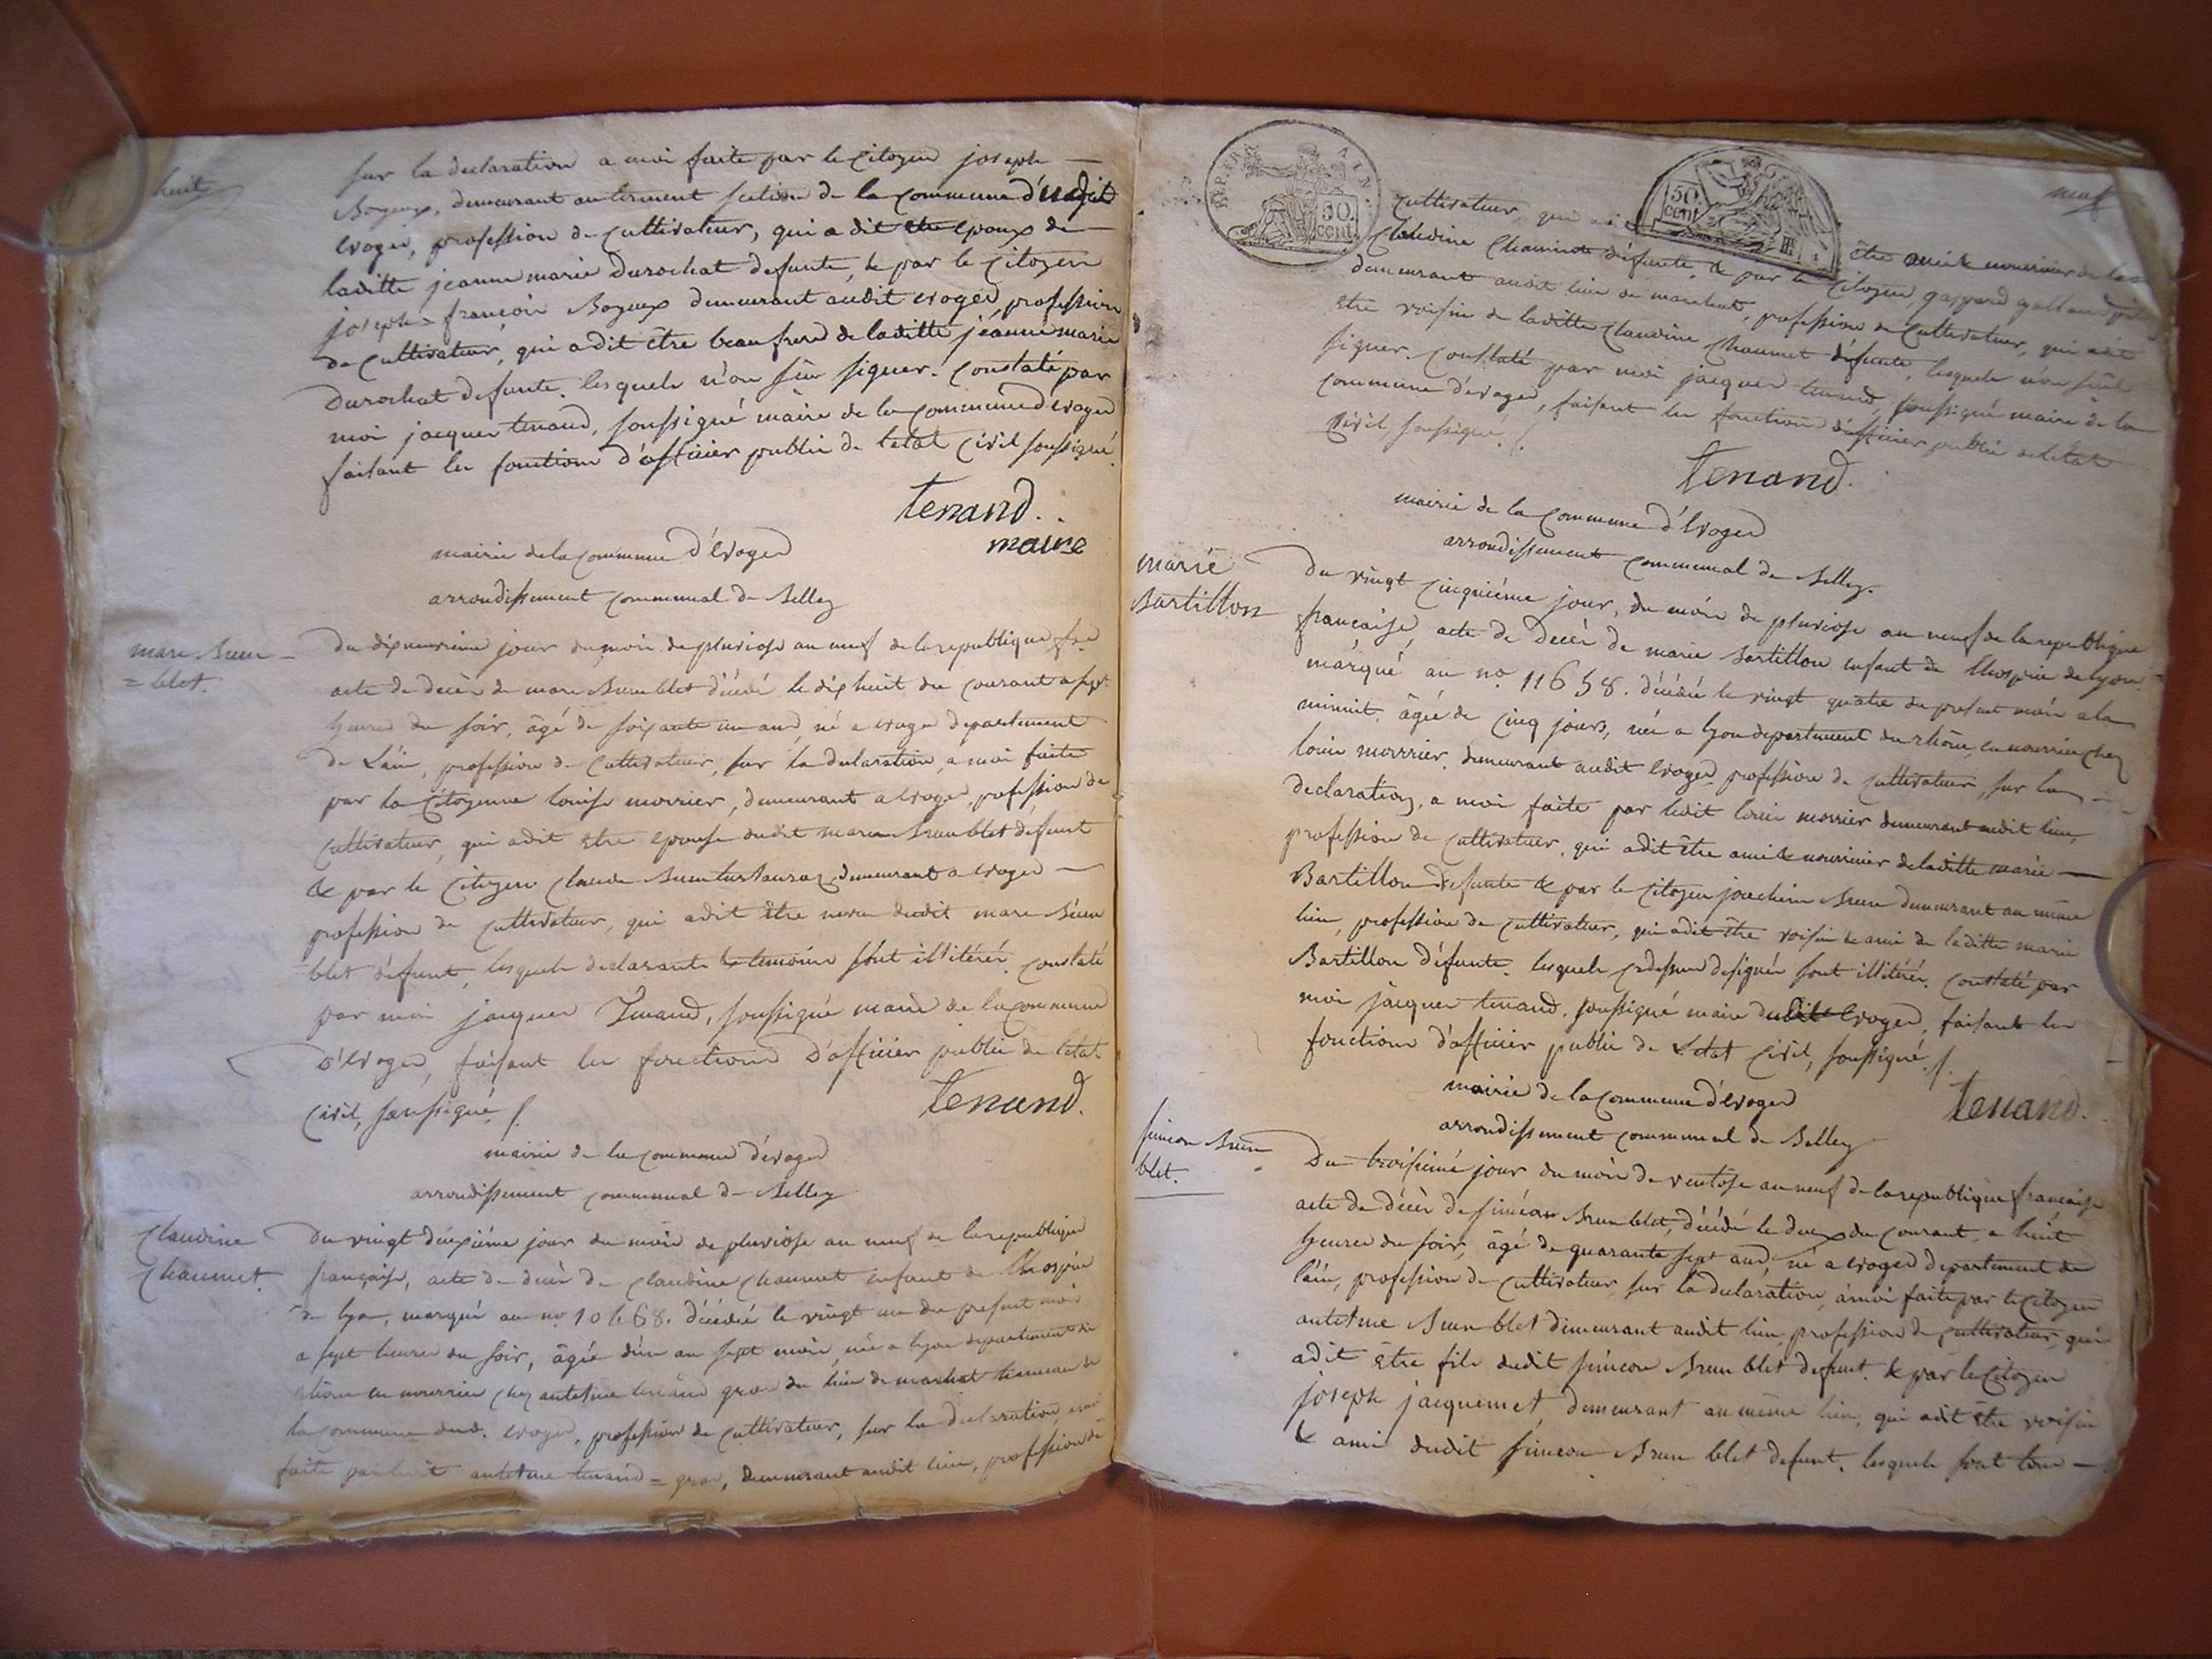 huit
sur la declaration a moi faite par le citoyen joseph
Bozeux, demeurant section de la commune d'udit
evoges, profession de cultivateur, qui a dit etre epoux de
laditte jeanne marie Durochat defunte, & par le citoyen
joseph françois Bozeux demeurant audit evoges, profession
de cultivateur, qui a dit être beau frere de laditte jeanne marie
Durochat defunte. lesquels n'on sçu signer. Constaté par
moi jacques tenand, soussigné maire de la commune d'evoges
faisant les fonctions d'officier public de letat civil soussigné.
tenand.
maire
mairie de la commune d'Evoges
arrondissement communal de Belley
marc Brun
=blet.
Du dixneuvieme jour du mois de pluviose an neuf de la republique fse
acte de decès de marc Brunblet décédé le dix huit du courant a sept
heures du soir, âgé de soixante un ans, né a evoges departement
de L'ain, profession de cultivateur, sur la declaration, a moi faite
par la Citoyenne louise morrier, demeurant a evoges, profession de
cultivateur, qui a dit etre epouse dudit marc Brunblet défunt
& par le Citoyen Claude demeurant a evoges
profession de cultivateur, qui a dit être neveu dudit marc Brun
blet défunt, lesquels declarants & temoins sont illitérés. constaté
par moi jacques Tenand, soussigné maire de la commune
d'Evoges, faisant les fonctions d'officier public de l'etat
Civil, soussigné /.
tenand.
mairie de la commune d'evoges
arrondissement communal de Belley
Claudine
Chaumet.
Du vingt deuxième jour du mois de pluviose an neuf de la republique
française, acte de decès de Claudine Chaumet enfant de l'hospice
de lyon, marqué au no. 10468. décédée le vingt un du present mois
a sept heures du soir, âgée d'un an sept mois, née a lyon departement du
rhône en nourrice chez antelme tenand gros du lieu de marchat hameau de
la commune dud. evoges, profession de cultivateur, sur la declaration, a moi
faite par ledit antelme tenand = gros, demeurant audit lieu, profession de
REP. FRA
50.
cent.
50
cent
neuf
cultivateur, qui a dit être ami & nourricier de lad.
Claudine Chaumet défunte, & par le Citoyen gaspard galland
demeurant audit lieu de marchat, profession de Cultivateur, qui a dit
etre voisin de laditte Claudine Chaumet défunte, lesquels n'on sçu
signer. Constaté par moi jacques tenand, soussigné maire de la
commune d'evoges, faisant les fonctions d'officier public de letat
Civil, soussigné. /.
tenand.
mairie de la commune d'Evoges
arrondissement communal de Belley.
marie
Bartillon
Du vingt cinquiéme jour, du mois de pluviose an neuf de la republique
française, acte de decès de marie Bartillon enfant de l'hospice de lyon
marqué au no. 11658. décédée le vingt quatre du present mois a la
minuit, âgée de cinq jours, née a lyon departement du rhône, en nourrice chez
louis morrier, demeurant audit Evoges profession de cultivateur, sur la
declaration, a moi faite par ledit louis morrier demeurant audit lieu,
profession de cultivateur, qui a dit être ami & nourricier de laditte marie
Bartillon defunte & par le citoyen joachim Brun demeurant au même
lieu, profession de cultivateur, qui a dit être voisin & ami de laditte marie
Bartillon défunte. lesquels cidessus designés sont illitérés. Constaté par
moi jacques tenand, soussigné maire dudit Evoges, faisant les
fonctions d'officier public de L'etat Civil, soussigné. /.
tenand.
mairie de la commune d'Evoges
arrondissement communal de Belley
simeon Brun
blet.
Du troisieme jour du mois de ventôse an neuf de la republique française
acte de décès de siméon Brunblet, décédé le deux du courant, a huit
heures du soir, âgé de quarante sept ans né a evoges departement de
l'ain, profession de cultivateur, sur la declaration, a moi faite par le Citoyen
antelme Brun blet demeurant audit lieu profession de cultivateur, qui
a dit être fils dudit siméon Brun blet defunt. & par le Citoyen
joseph jacquemet, demeurant au même lieu, qui a dit être voisin
& ami dudit simeon Brun blet defunt. lesquels sont tous